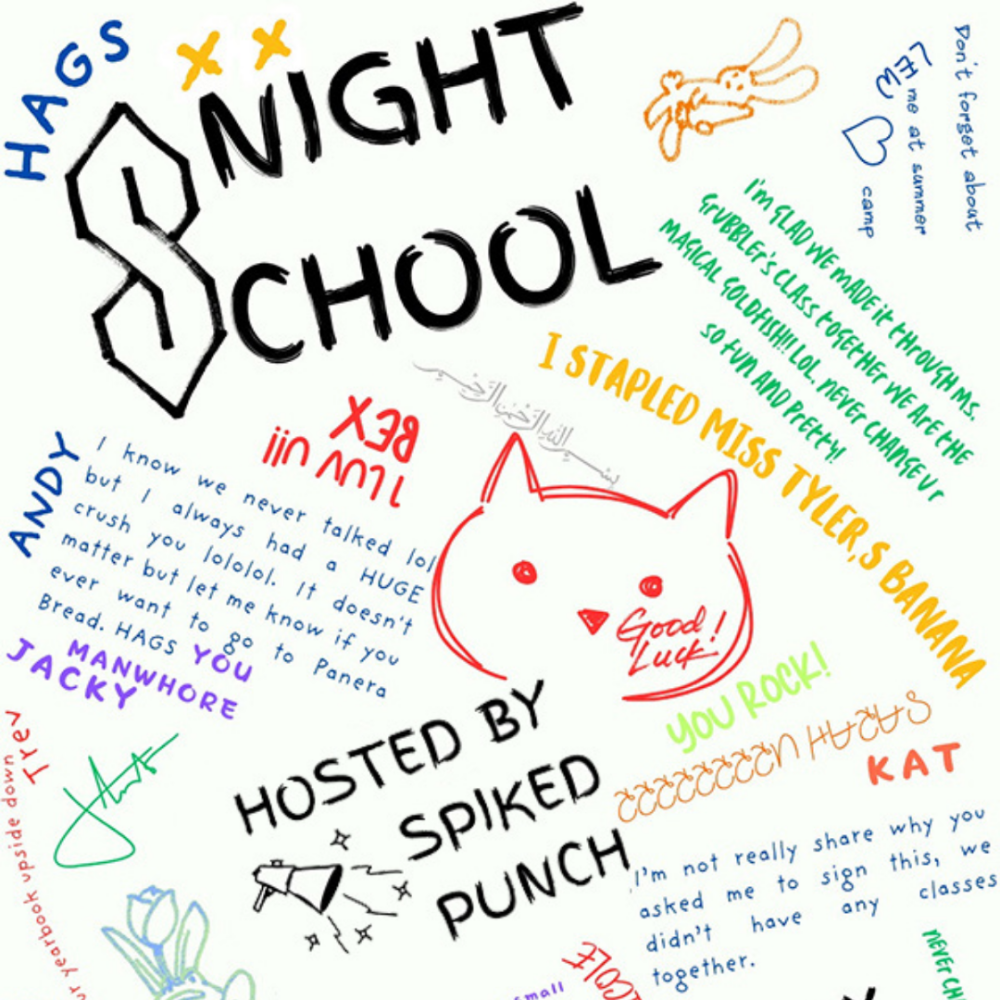 HAGS
NIGHT
SCHOOL
Don't forget about
me at summer
camp
I'm GLAD WE MADE it tHrOUGH MS.
GrUBBLEr's CLAss toGEtHEr WE ArE tHE
MAGICAL GOLDFISH!! LOL. NEVEr CHANGE Ur
so fUN AND PrEttY!
I STAPLED MISS TYLER,S BANANA
LUV uii
BEX
بسم الله الرحمن الرحيم
ANDY
I know we never talked lol
but I always had a HUGE
crush you lololol. It doesn't
matter but let me know if you
ever want to go to Panera
Bread. HAGS
YOU
MANWHORE
JACKY
Good!
Luck!
YOU ROCK!
HOSTED BY
SPIKED
PUNCH
KAT
Trev
ur yearbook upside down
I'm not really share why you
asked me to sign this, we
didn't have any classes
together.
NEVEr CH
small